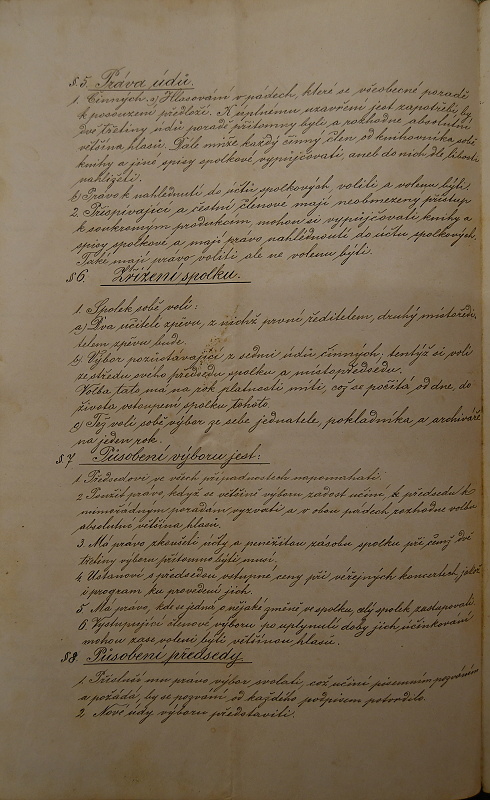 § 5. Práva údů.
1. Činných. a) Hlasování v pádech, které se všeobecné poradě
k posouzení předloží. K úplnému uzavření jest zapotřebí, by
dvě třetiny údů poradě přítomny byly a rozhodne absolutní
většina hlasů. Dále může každý činný člen od knihovníka sobě
knihy a jiné spisy spolkové vypůjčovati, aneb do nich dle libosti
nahlížeti.
b) Právo k nahlédnutí do účtů spolkových, voliti a volenu býti.
2. Přispívající a čestní členové mají neobmezený přístup
k soukromým produkcím, mohou si vypůjčovati knihy a
spisy spolkové a mají právo nahlédnouti do účtu spolkových,
Také mají právo voliti ale ne volenu býti.
§ 6. Zřízení spolku.
1. Spolek sobě volí:
a) Dva učitele zpěvu, z nichž první ředitelem, druhý místoředi-
telem zpěvu bude.
b) Výbor pozůstávající z sedmi údů činných; tentýž si volí
ze středu svého předsedu spolku a místopředsedu.
Volba tato má na rok platnosti míti, což se počítá od dne, do
života vstoupení spolku tohoto.
c) Též volí sobě výbor ze sebe jednatele, pokladníka a archiváře
na jeden rok.
§ 7. Působení výboru jest:
1. Předsedovi ve všech případnostech napomáhati.
2 Použít právo, když se většině výboru zadost učiní, k předsedu k
mimořádným poradám vyzvati a v obou pádech rozhodne volba
absolutní většina hlasů.
3. Má právo zkoušeti účty a peněžitou zásobu spolku při čemž dvě
třetiny výboru přítomno býti musí,
4 Ustanoví s předsedou vstupné ceny při veřejných koncertech, jakož
i program ku provedení jich.
5 Má právo, kde se jedná o nějaké změně ve spolku, celý spolek zastupovati.
6 Vystupující členové výboru po uplynutí doby jich účinkování
mohou zase voleni býti většinou hlasů.
§ 8. Působení předsedy.
1. Přísluší mu právo výbor svolati, což učiní písemním pozváním
a požádá, by se pozvání od každého podpisem potvrdilo.
2 Nové údy výboru představiti.